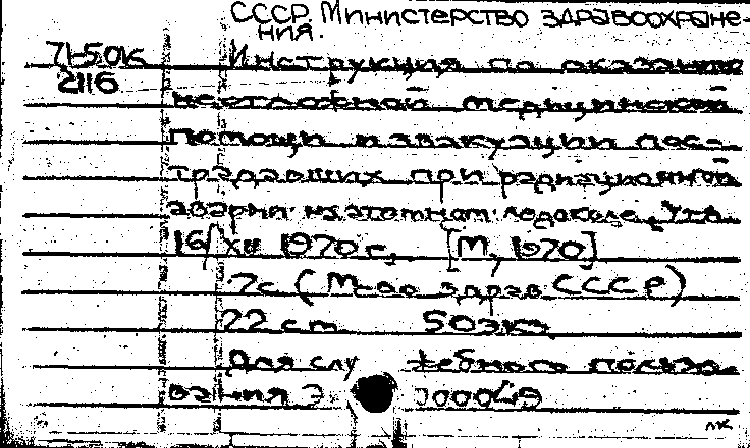 СССР. Министерство здравоохране-
ния.
71-50к Инструкция по оказанию
2116
неотложной медицинской
помощи и эвакуации пос-
традавших при радиационной
аварии на атомном ледоколе. Утв.
16/XII 1970 г. [М, 1970]
7с (М-во здрав СССР)
22 см 50 экз.
Для служебного пользо-
вания Э 000049